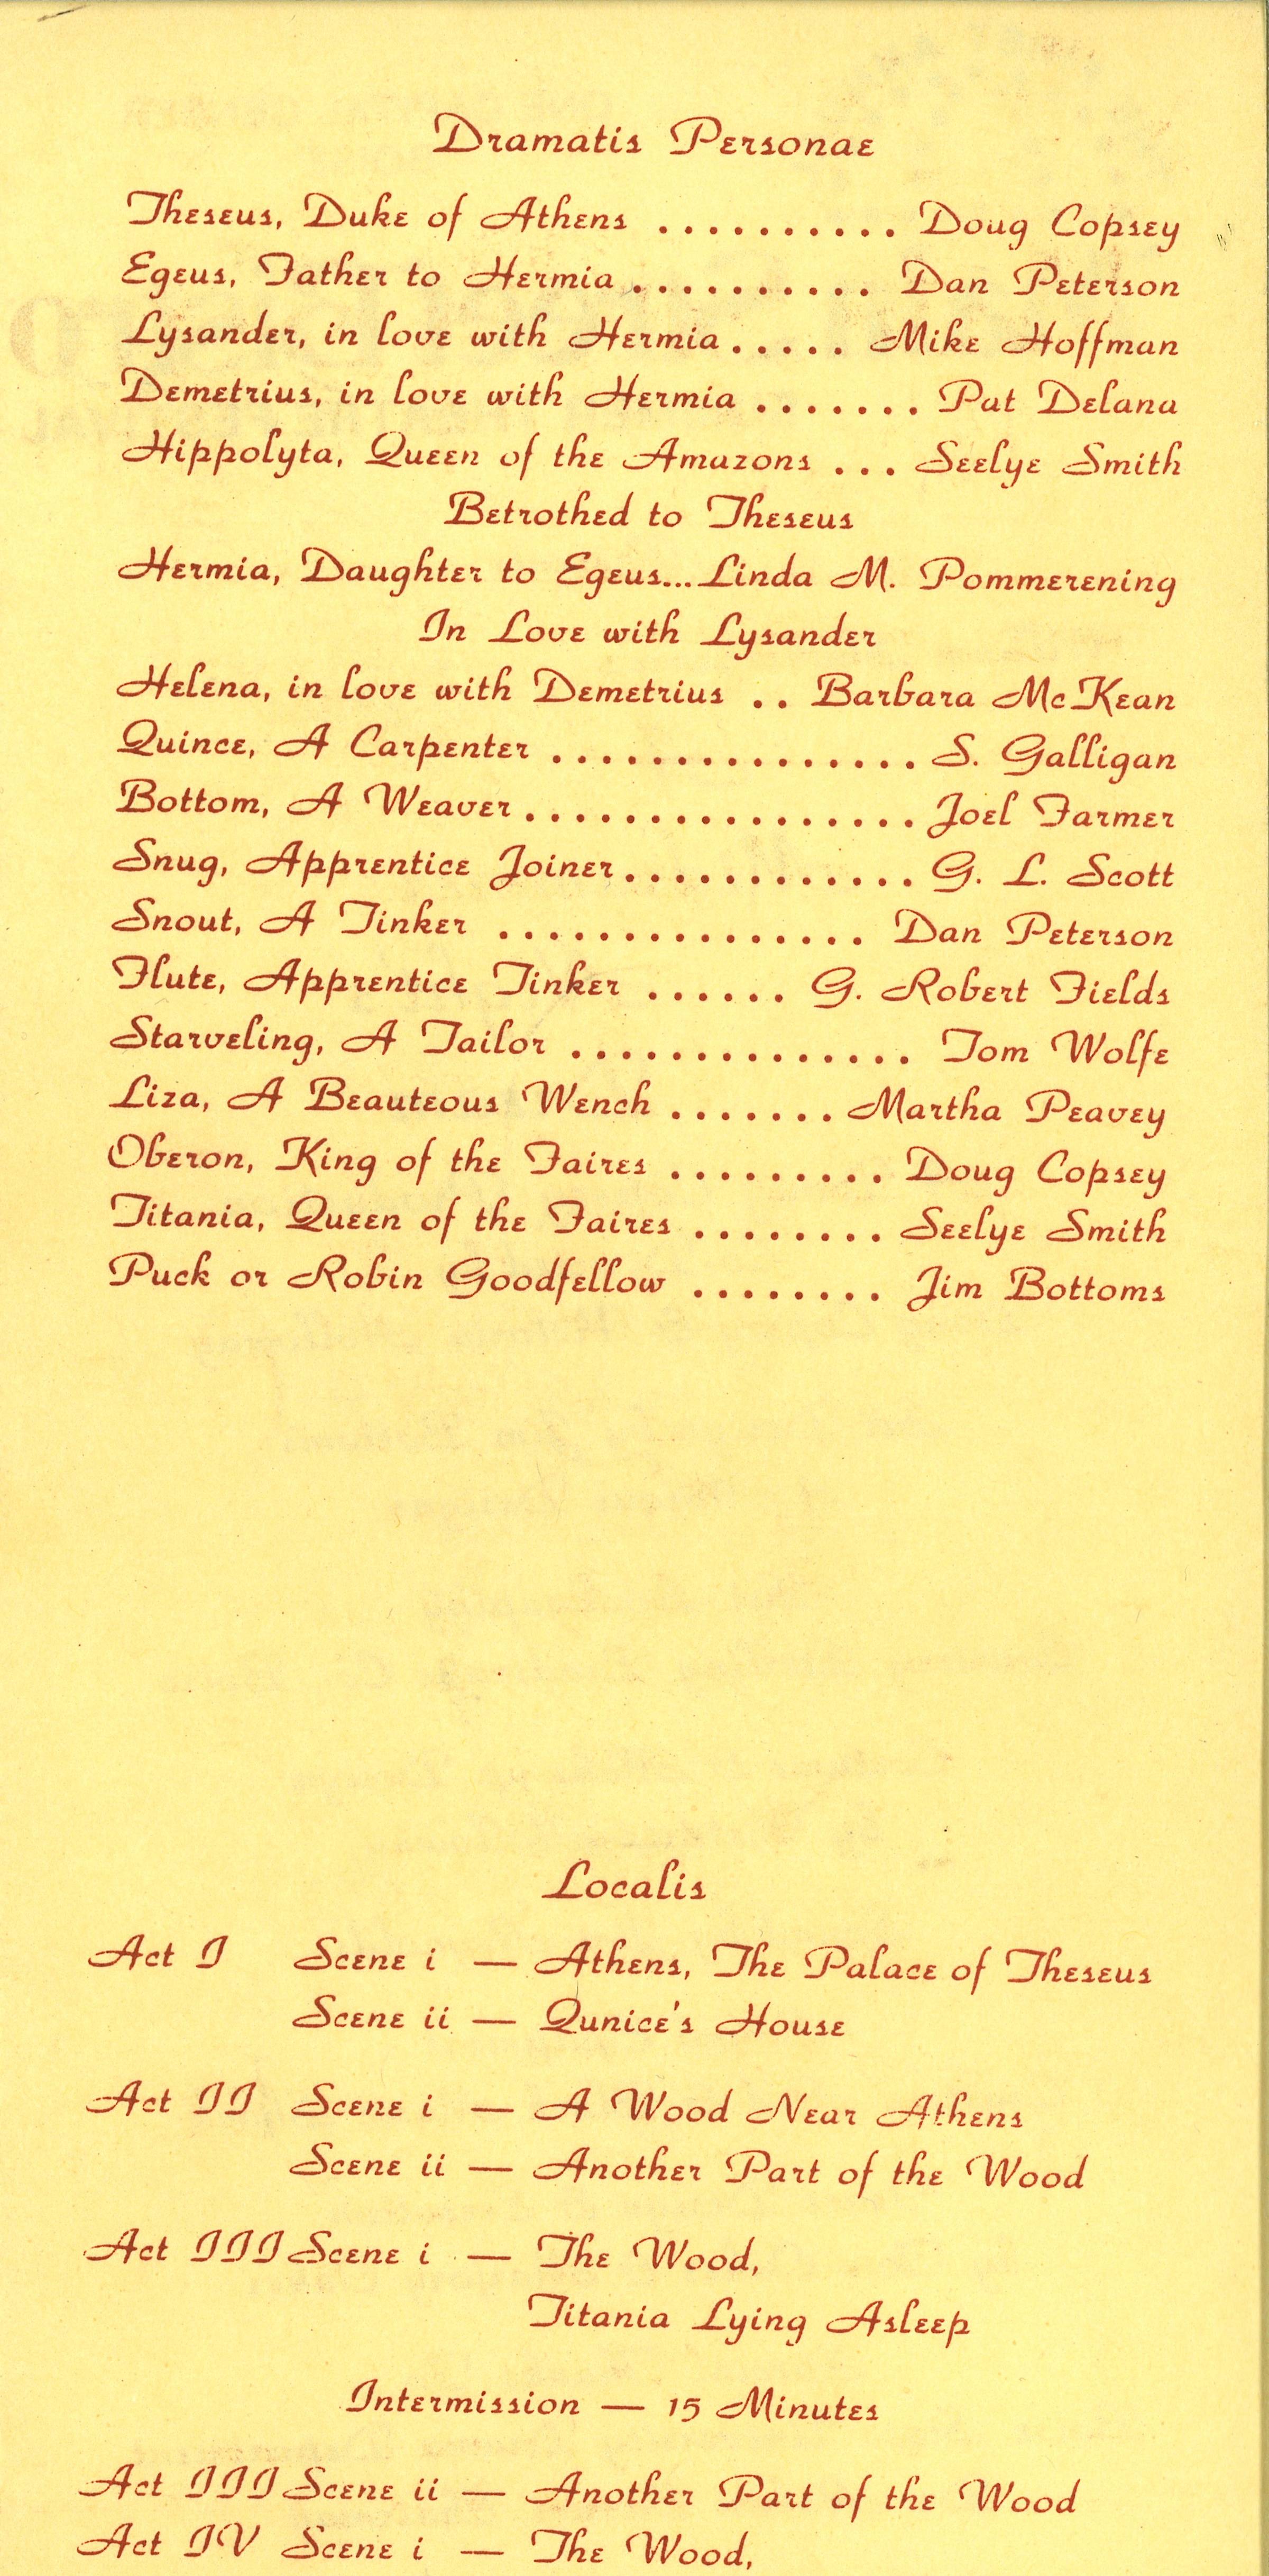 Dramatis Personae
Theseus, Duke of Athens .......... Doug Copsey
Egeus, Father to Hermia .......... Dan Peterson
Lysander, in love with Hermia ..... Mike Hoffman
Demetrius, in love with Hermia ....... Pat Delana
Hippolyta, Queen of the Amazons ... Seelye Smith
Betrothed to Theseus
Hermia, Daughter to Egeus...Linda M. Pommerening
In Love with Lysander
Helena, in love with Demetrius .. Barbara McKean
Quince, A Carpenter ............... S. Galligan
Bottom, A Weaver ................ Joel Farmer
Snug, Apprentice Joiner ............ G. L. Scott
Snout, A Tinker ............... Dan Peterson
Flute, Apprentice Tinker ...... G. Robert Fields
Starveling, A Tailor .............. Tom Wolfe
Liza, A Beauteous Wench ....... Martha Peavey
Oberon, King of the Faires ......... Doug Copsey
Titania, Queen of the Faires ........ Seelye Smith
Puck or Robin Goodfellow ........ Jim Bottoms
Localis
Act I Scene i — Athens, The Palace of Theseus
Scene ii — Qunice's House
Act II Scene i — A Wood Near Athens
Scene ii — Another Part of the Wood
Act III Scene i — The Wood,
Titania Lying Asleep
Intermission — 15 Minutes
Act III Scene ii — Another Part of the Wood
Act IV Scene i — The Wood,